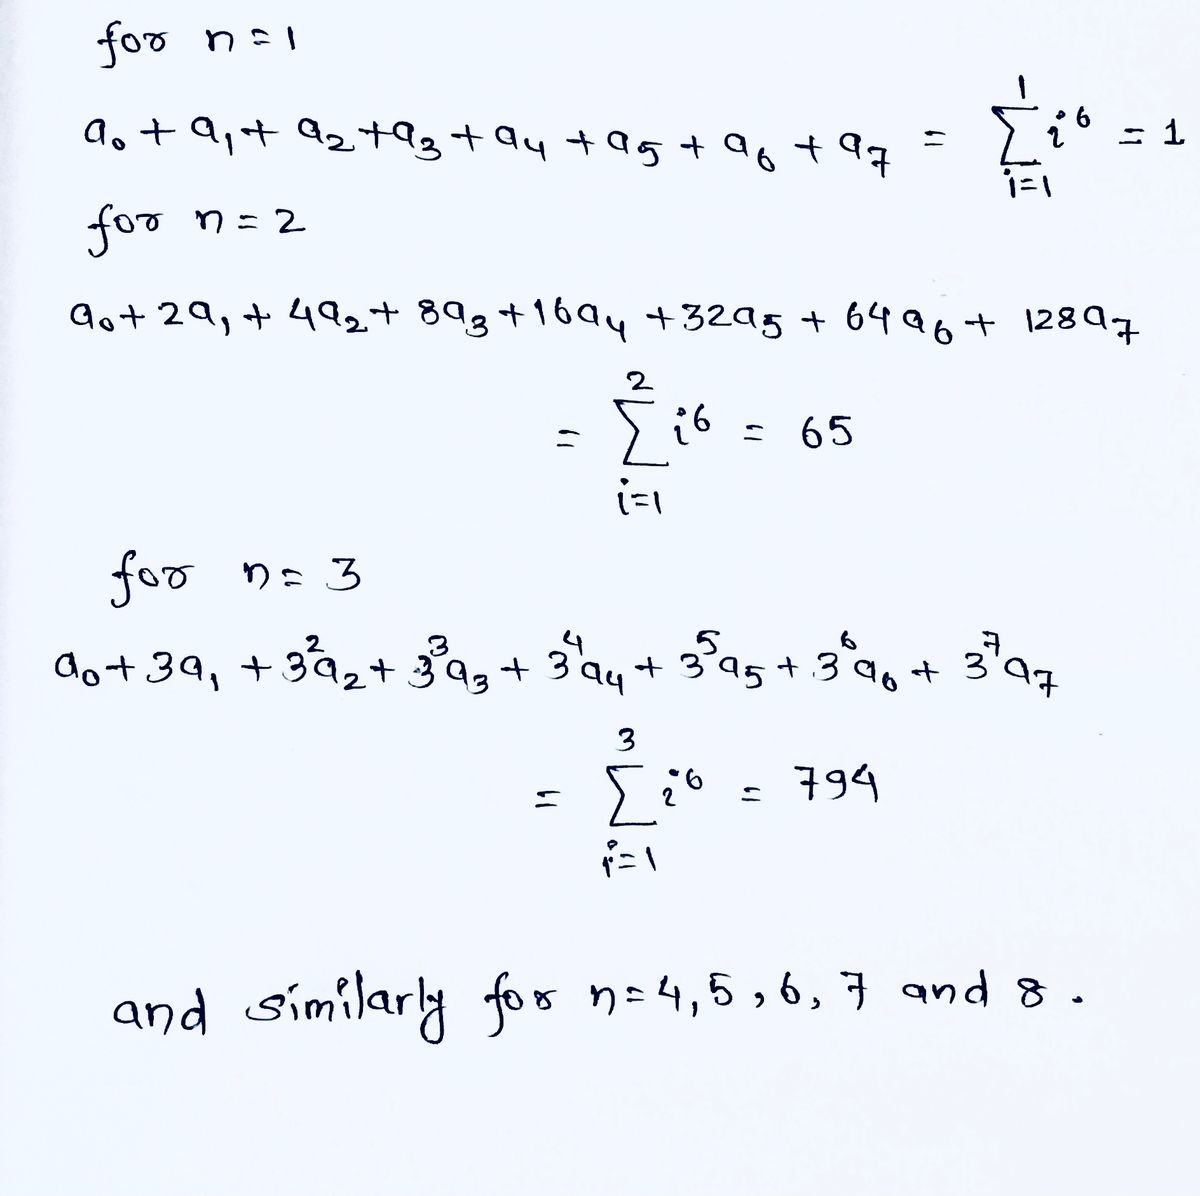 for n=1
a₀ + a₁ + a₂ + a₃ + a₄ + a₅ + a₆ + a₇ = ∑_{i=1}^{1} i⁶ = 1
for n=2
a₀ + 2a₁ + 4a₂ + 8a₃ + 16a₄ + 32a₅ + 64a₆ + 128a₇
= ∑_{i=1}^{2} i⁶ = 65
for n=3
a₀ + 3a₁ + 3²a₂ + 3³a₃ + 3⁴a₄ + 3⁵a₅ + 3⁶a₆ + 3⁷a₇
= ∑_{i=1}^{3} i⁶ = 794
and similarly for n=4,5,6,7 and 8.